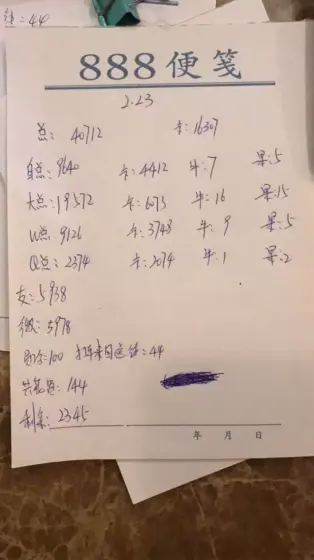 仕:44
888便笺
2.23
总:40712 卡:16307
自点:9640 卡:4412 牛:7 果:5
大点:19572 卡:6073 牛:16 果:15
W点:9126 卡:3748 牛:9 果:5
Q点:2374 卡:2074 牛:1 果:2
支:5938
微:5978
:100 :44
:144
剩余:2345
年 月 日